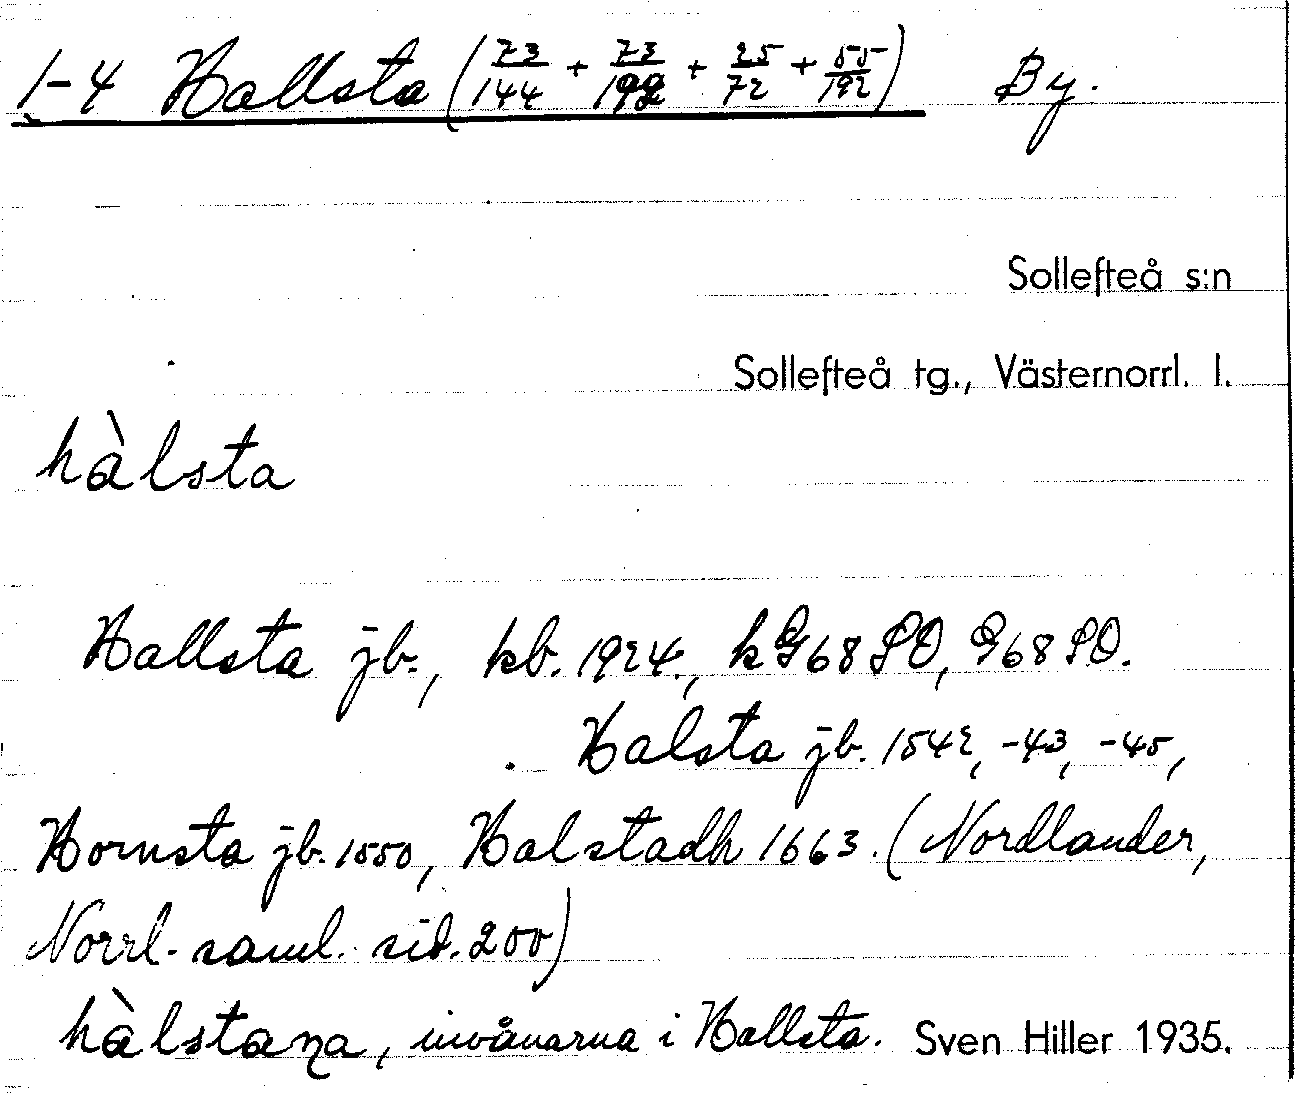 1-4 Hallsta (73/144 + 73/192 + 25/72 + 55/192) By.
Sollefteå s:n
Sollefteå tg., Västernorrl. l.
hàlsta
Hallsta jb., kb. 1924, kG68SO, G68SO.
Halsta jb. 1542, -43, -45,
Hornsta jb. 1550, Halstadh 1663. (Nordlander,
Norrl. saml. sid. 200)
hàlstaꞃa, invånarna i Hallsta. Sven Hiller 1935.